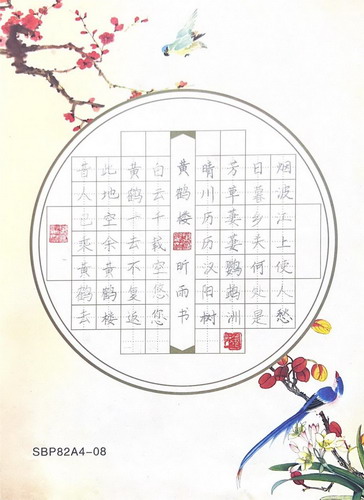 昔人已乘黄鹤去
此地空余黄鹤楼
黄鹤一去不复返
白云千载空悠悠
黄鹤楼 昕雨书
晴川历历汉阳树
芳草萋萋鹦鹉洲
日暮乡关何处是
烟波江上使人愁
SBP82A4-08